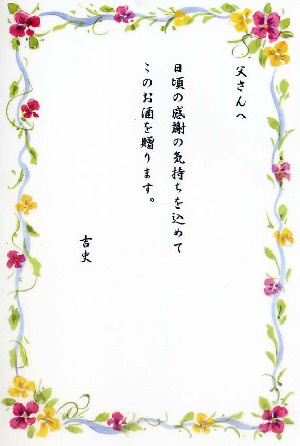 父さんへ
日頃の感謝の気持ちを込めて
このお酒を贈ります。
吉史